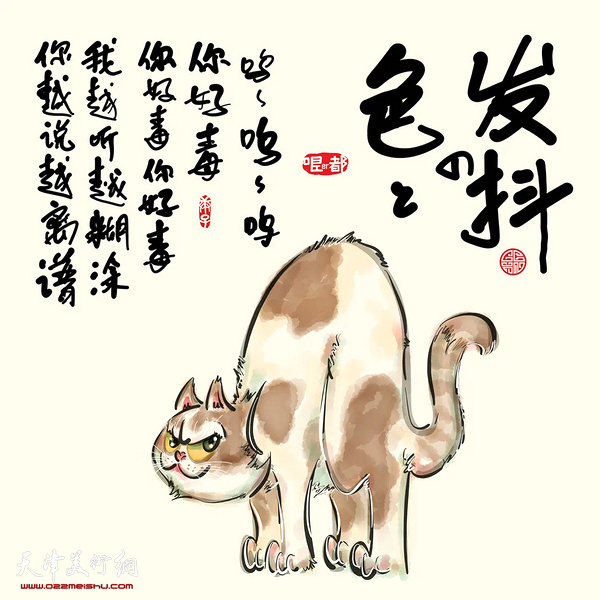 发抖
の
色
哏er都
呜々呜々呜
你好毒
你好毒你好毒
我越听越糊涂
你越说越离谱
天津美術網
www.022meishu.com